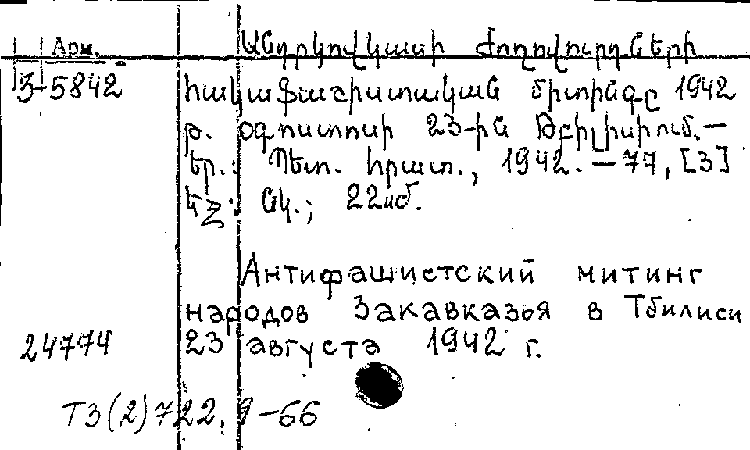 Арм. Անդրկովկասի ժողովուրդների
3-5842 հակաֆաշիստական միտինգը 1942
թ. օգոստոսի 23-ին Թբիլիսիում.—
Եր.: Պետ. հրատ., 1942.—77, [3]
էջ: նկ.; 22սմ.
Антифашистский митинг
народов Закавказья в Тбилиси
24774 23 августа 1942 г.
Т3(2)722,9-66